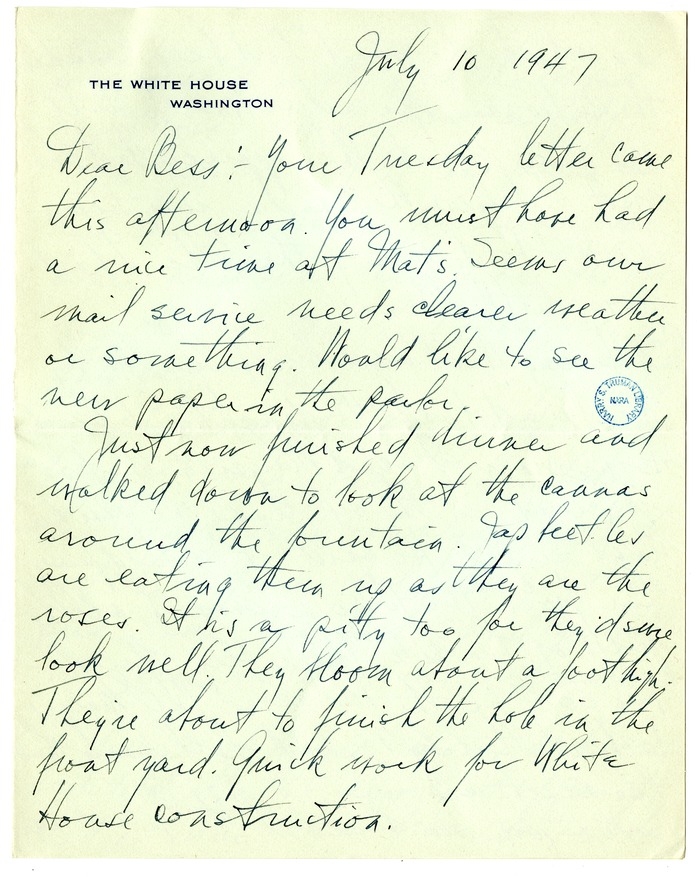 July 10 1947
THE WHITE HOUSE
WASHINGTON
Dear Bess:- Your Tuesday letter came
this afternoon. You must have had
a nice time at Mat's. Seems our
mail service needs clearer weather
or something. Would like to see the
new paper in the parlor.
HARRY S. TRUMAN LIBRARY
NARA
Just now finished dinner and
walked down to look at the cannas
around the fountain. Jap beetles
are eating them up as they are the
roses. It is a pity too for they'd sure
look well. They bloom about a foot high.
They're about to finish the hole in the
front yard. Quick work for White
House construction.